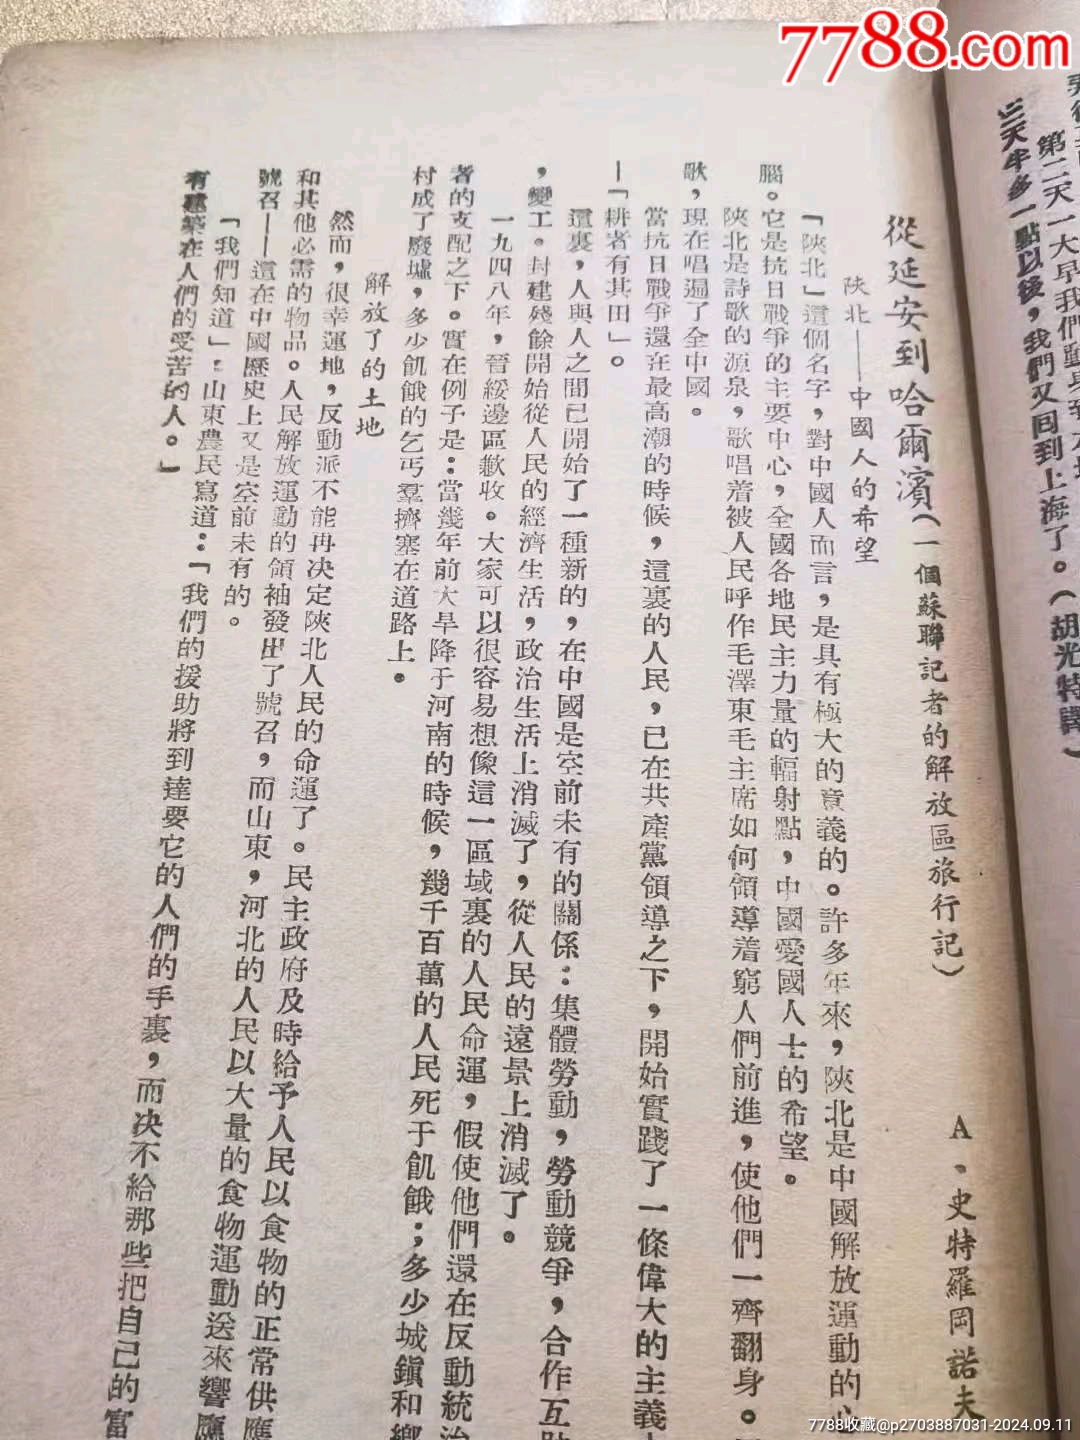 7788.com
第二天一大早我們動身到
三天半多一點以後，我們又回到上海了。（胡光特譯）
從延安到哈爾濱（一個蘇聯記者的解放區旅行記）
A．史特羅岡諾夫
陝北——中國人的希望
「陝北」這個名字，對中國人而言，是具有極大的意義的。許多年來，陝北是中國解放運動的心
腦。它是抗日戰爭的主要中心，全國各地民主力量的輻射點，中國愛國人士的希望。
陝北是詩歌的源泉，歌唱着被人民呼作毛澤東毛主席如何領導着窮人們前進，使他們一齊翻身。
歌，現在唱遍了全中國。
當抗日戰爭還在最高潮的時候，這裏的人民，已在共產黨領導之下，開始實踐了一條偉大的主義
—「耕者有其田」。
這裏，人與人之間已開始了一種新的，在中國是空前未有的關係：集體勞動，勞動競爭，合作互助
，變工。封建殘餘開始從人民的經濟生活，政治生活上消滅了，從人民的遠景上消滅了。
一九四八年，晉綏邊區歉收。大家可以很容易想像這一區域裏的人民命運，假使他們還在反動統治
者的支配之下。實在例子是：當幾年前大旱降于河南的時候，幾千百萬的人民死于飢餓；多少城鎮和鄉
村成了廢墟，多少飢餓的乞丐羣擠塞在道路上。
解放了的土地
然而，很幸運地，反動派不能再決定陝北人民的命運了。民主政府及時給予人民以食物的正常供應
和其他必需的物品。人民解放運動的領袖發出了號召，而山東，河北的人民以大量的食物運動送來響應
號召——這在中國歷史上又是空前未有的。
「我們知道」：山東農民寫道：「我們的援助將到達要它的人們的手裏，而決不給那些把自己的富
有建築在人們的受苦的人。」
7788收藏@p2703887031-2024.09.11